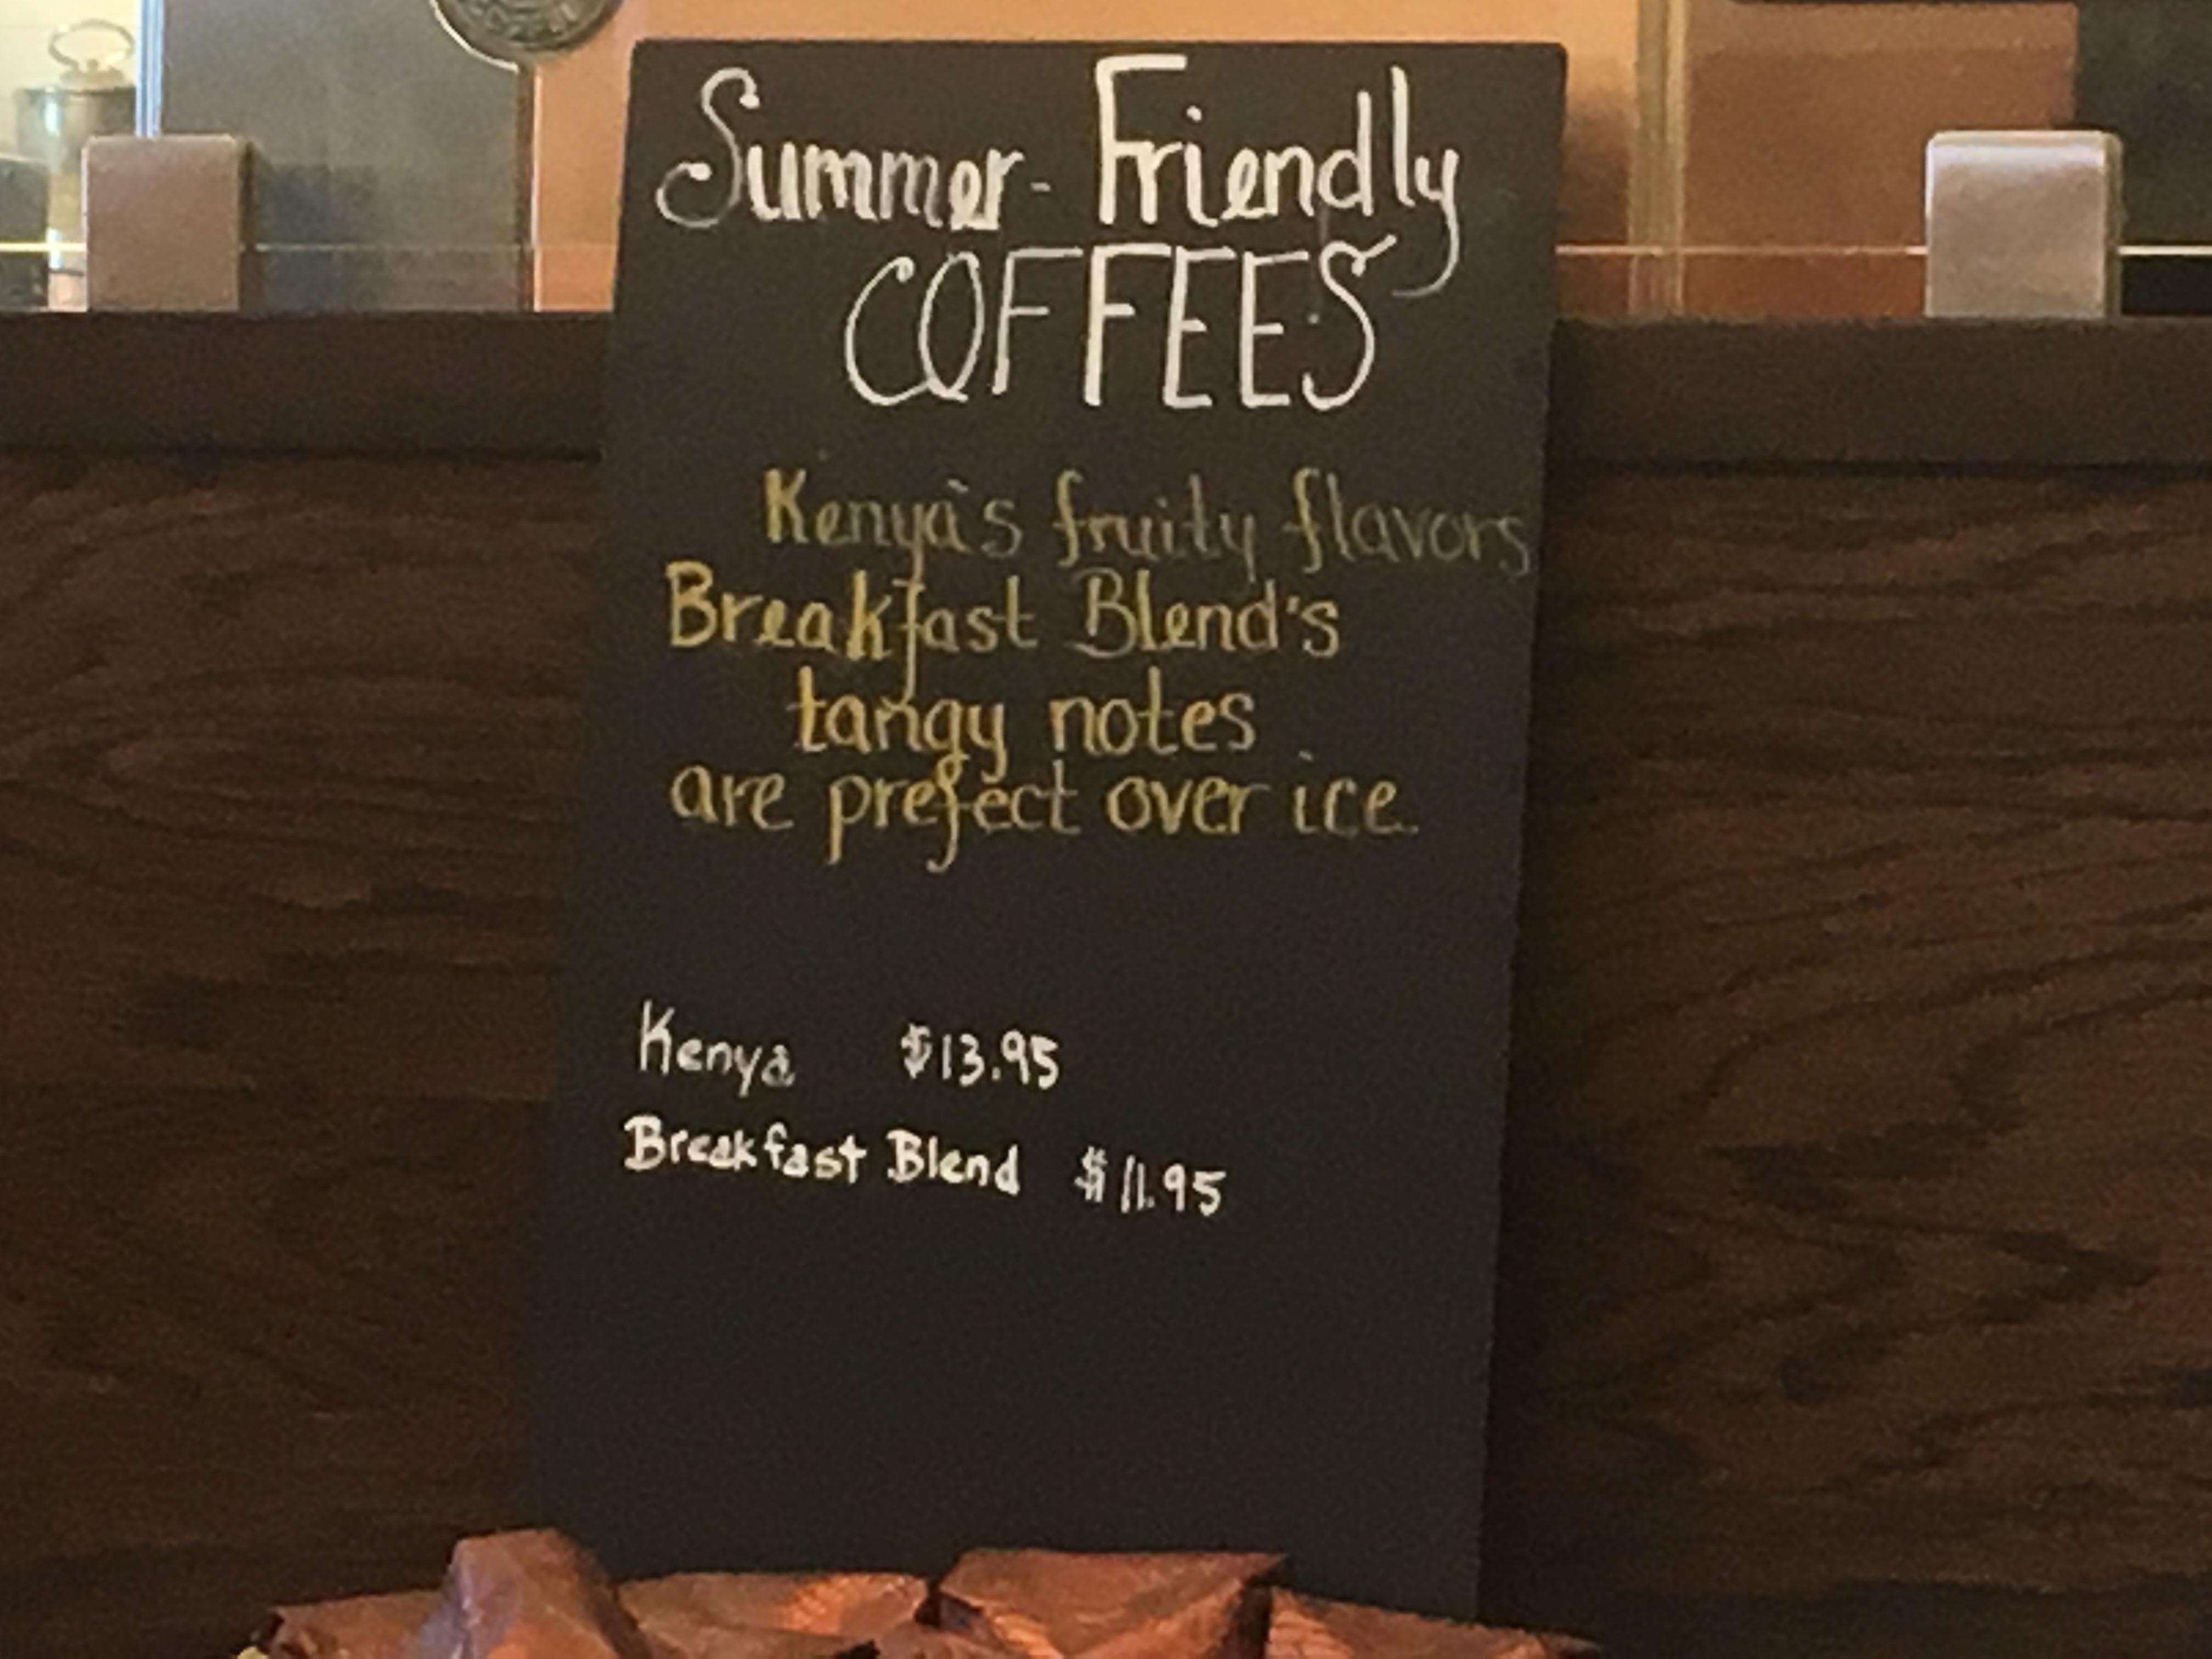 Summer-Friendly
COFFEES
Kenya's fruity flavors
Breakfast Blend's
tangy notes
are prefect over ice.
Kenya $13.95
Breakfast Blend $11.95